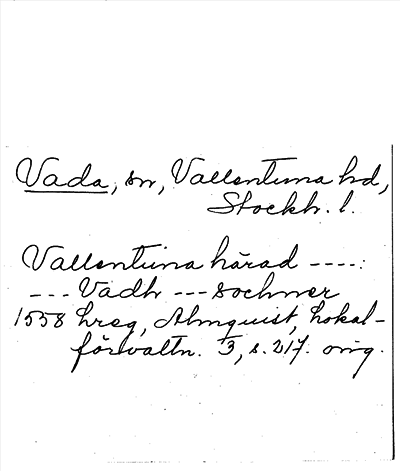 Vada, sn, Vallentuna hd,
Stockh. l.
Vallentuna härad ----:
--- Vadh --- sochner
1558 hreg, Almquist, Lokal-
förvaltn. 3, s. 217. orig.